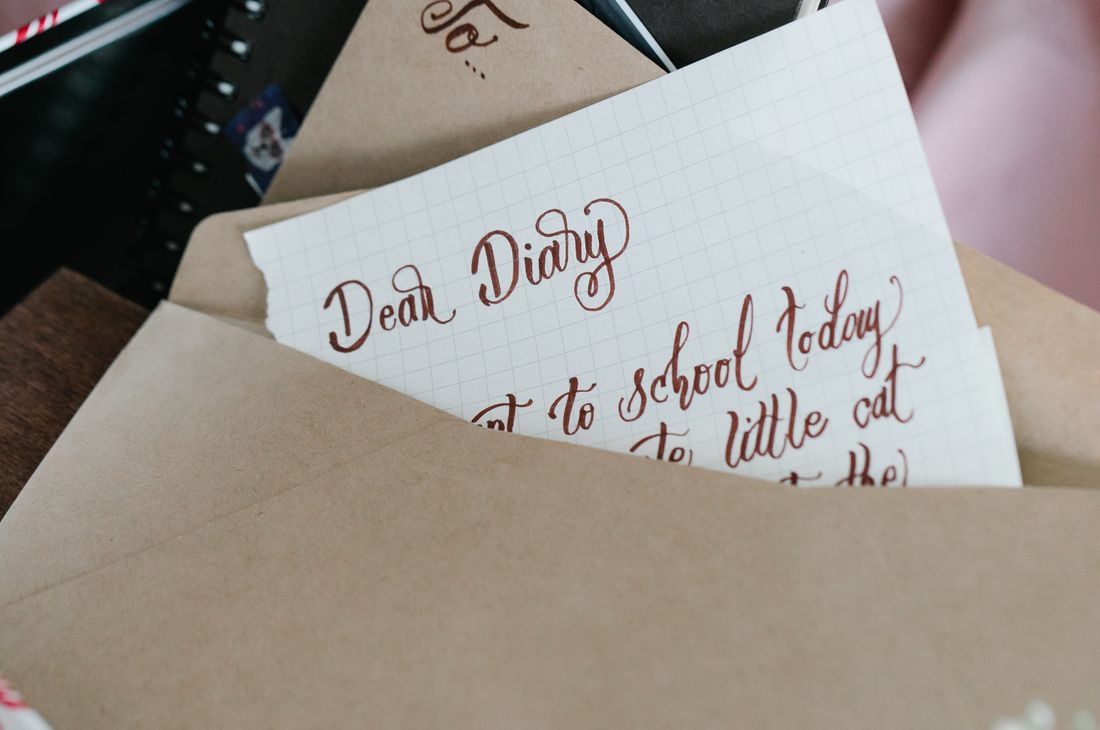 To
Dear Diary
to school today
little cat
the